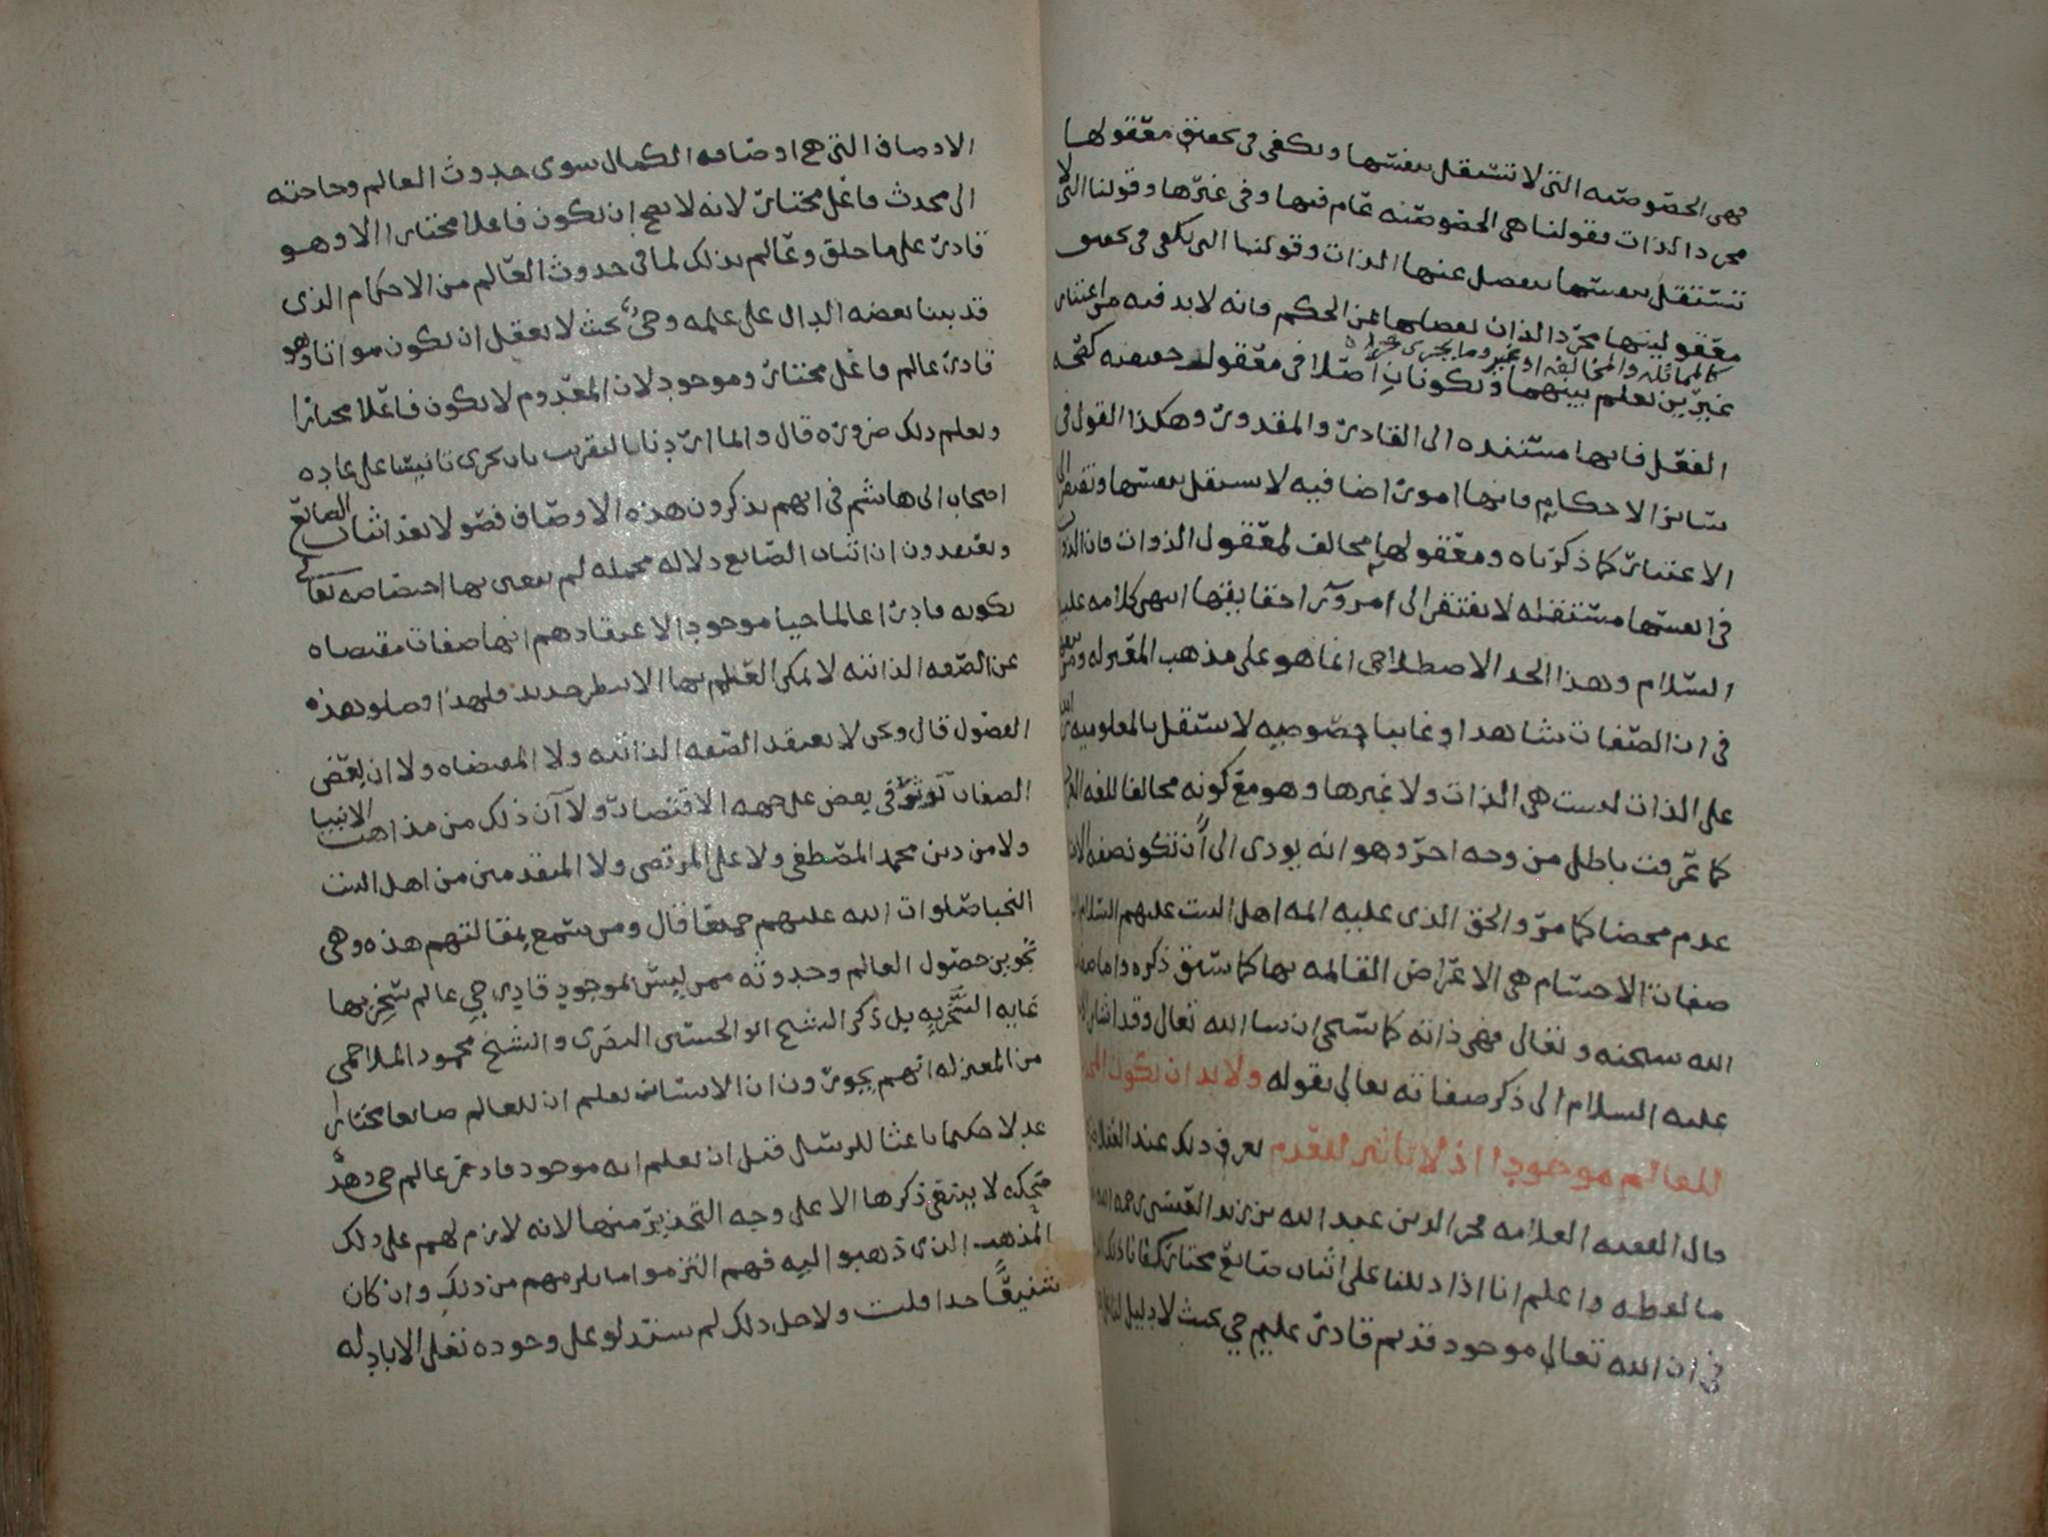 فهى الخصوصيه التى لا تستقل بنفسها ويكفى فى تحقيق معقولها
مجرد الذات فقولنا هى الخصوصيه عام فيها وفى غيرها وقولنا التى لا
تستقل بنفسها يفصل عنها الذات وقولنا التى يكفى فى تحقيق
معقوليتها مجرد الذات يفصلها عن الحكم فانه لا بد فيه من اعتبار
كالمماثله والمخالفه او غير وما يجرى مجراه
غيرين يعلم بينهما ويكونان اصلا فى معقول حقيقته كصحه
الفعل فانها مستنده الى القادر والمقدور وهكذا القول فى
سائر الاحكام فانها امور اضافيه لا تستقل بنفسها وتفتقر الى
الاعتبار كما ذكرناه ومعقولها مخالف لمعقول الذوات فان الذوات
فى انفسها مستقله لا تفتقر الى امر ورآ حقايقها انتهى كلامه عليه
السلام وهذا الحد الاصطلاحى انما هو على مذهب المعتزله ومن
فى ان الصفات شاهدا وغايبا خصوصيه لا تستقل بالمعلوميه
على الذات ليست هى الذات ولا غيرها وهو مع كونه مخالفا للغه
كما عرفت باطل من وجه اخر وهو انه يودى الى ان تكون صفه
عدم محضا كما مر والحق الذى عليه ائمه اهل البيت عليهم السلام
صفات الاجسام هى الاعراض القائمه بها كما سبق ذكره واما
الله سبحنه وتعالى فهى ذاته كما سيجى ان شا الله تعالى وقد اشار
عليه السلام الى ذكر صفاته تعالى بقوله ولا بد ان يكون المحدث
للعالم موجودا اذ لا تاثير للعدم يعرف ذلك عند العقلا
قال الفقيه العلامه فخر الدين عبد الله بن زيد العنسى رحمه الله
ما لفظه واعلم انا اذا دللنا على اثبات صانع مختار كفانا ذلك
فى ان الله تعالى موجود قديم قادر عليم حى بحيث لا دليل لنا
الاوصاف التى هى اوصافه الكمال سوى حدوث العالم وحاجته
الى محدث فاعل مختار لانه لا يصح ان يكون فاعلا مختارا الا وهو
قادر على ما خلق وعالم بذلك لما فى حدوث العالم من الاحكام الذى
قد بينا بعضه الدال على علمه وحى بحيث لا يعقل ان يكون مواتا وهو
قادر عالم فاعل مختار وموجود لان المعدوم لا يكون فاعلا مختارا
ويعلم ذلك ضروره قال وانما اردنا بالتقريب بان يجرى تانيسا على عاده
اصحاب ابى هاشم فى انهم يذكرون هذه الاوصاف فصولا بعد اثبات الصانع
ويعتقدون ان اثبات الصانع دلاله مجمله لم يعنى بها اختصاصه تعالى
بكونه قادرا عالما حيا موجودا لاعتقادهم انها صفات مقتضاه
عن الصفه الذاتيه لا يمكن العلم بها الا بنظر جديد فلهذا وصلوا هذه
الفصول قال ونحن لا نعتقد الصفه الذاتيه ولا المقتضاه ولا ان بعض
الصفات توثر فى بعض على جهه الاقتضا ولا ان ذلك من مذاهب الانبيا
ولا من دين محمد المصطفى ولا على المرتضى ولا المتقدمين من اهل البيت
النجبا صلوات الله عليهم جميعا قال ومن سمع بمقالتهم هذه وهى
تجويز حصول العالم وحدوثه ممن ليس بموجود قادر حى عالم سخر بها
غايه السخريه بل ذكر الشيخ ابو الحسين البصرى والشيخ محمود الملاحمى
من المعتزله انهم يجوزون ان الانسان يعلم ان للعالم صانعا مختارا
عدلا حكيما باعثا للرسل قبل ان يعلم انه موجود قادر عالم حى وهذه
ضحكه لا ينبغى ذكرها الا على وجه التحذير منها لانه لازم لهم على ذلك
المذهب الذى ذهبوا اليه فهم التزموا ما يلزمهم من ذلك وان كان
شنيعا جدا قلت ولاجل ذلك لم يستدلوا على وجوده تعلى الا بادله